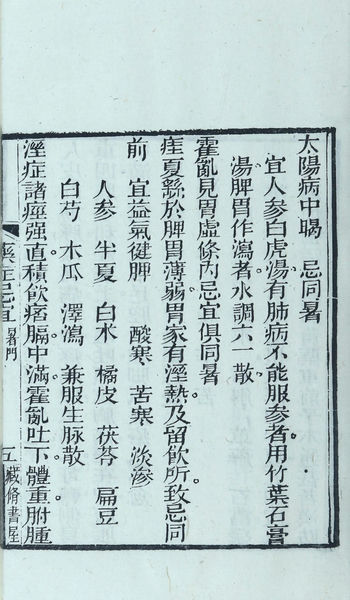 太陽病中暍　忌同暑
宜人參白虎湯有肺病不能服參者用竹葉石膏
湯脾胃作瀉者水調六一散
霍亂見胃虛條內忌宜俱同暑
疰夏繇於脾胃薄弱胃家有溼熱及留飲所致忌同
前　宜益氣健脾　酸寒　苦寒　淡滲
人參　半夏　白朮　橘皮　茯苓　扁豆
白芍　木瓜　澤瀉　兼服生脉散
溼症諸痙强直積飲痞膈中滿霍亂吐下體重胕腫
藥症忌宜　暑門　五　藏修書屋